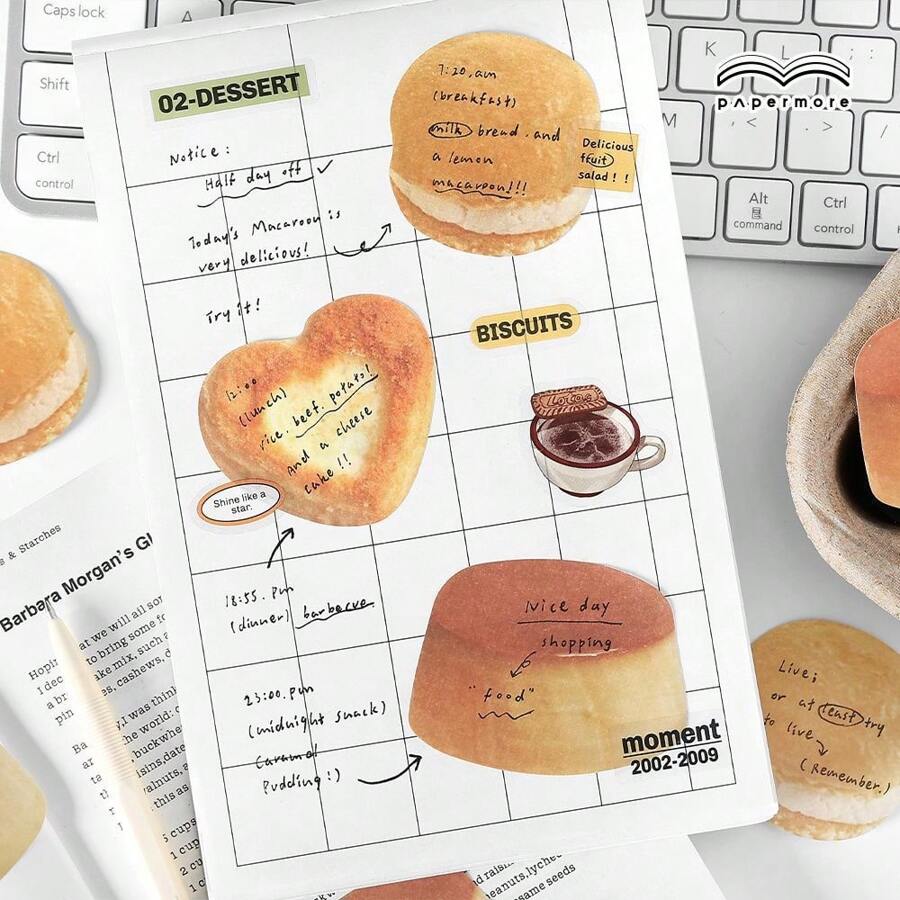 Caps lock
A
Shift
Ctrl
control
K
L
: ;
M
< ,
> .
/
Alt
command
Ctrl
control
papermore
02-DESSERT
7:20.am
(breakfast)
milk bread. and
a lemon
macaroon!!!
Delicious
fruit
salad ! !
Notice :
Half day off ✓
Today's Macaroon is
very delicious!
Try it!
BISCUITS
12:00
(lunch)
rice. beef. potato!
And a cheese
cake !!
Lotus
Shine like a
star.
18:55. pm
(dinner) barbecue
23:00.pm
(midnight snack)
Caramel
Pudding!)
Nice day
shopping
"food"
moment
2002-2009
Live;
or at least try
to live
(Remember.)
s & Starches
Barbara Morgan's Gl
Hopi
at we will all so
I deci
to bring some fo
a br
ake mix, such a
pin
es, cashews, d
Ba
y, I was thin
the world: o
ta
buckwhe
isins, date
alnuts, a
this as
5 cups
1 cup
2 cu
1 c
d raisin
peanuts, lyche
same seeds